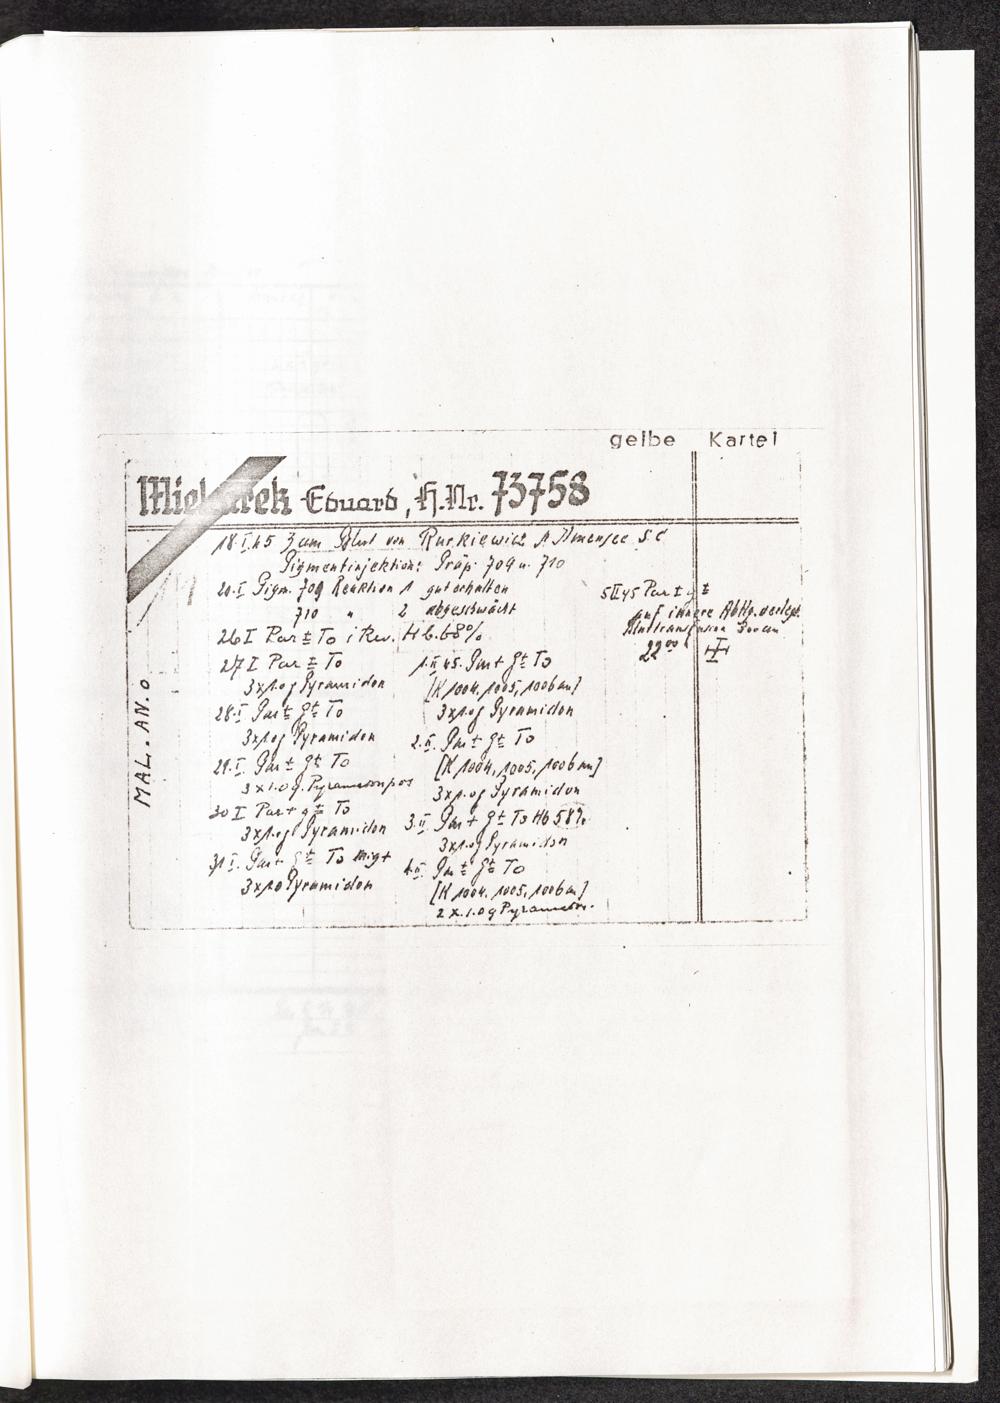 gelbe Kartei
Eduard, H.Nr. 73758
18.I.45 3 ccm Blut von Rurkiewicz S.C
Pigmentinjektion: Präp. 709 u. 710
20.I Pigm. 709 Reaktion 1 gut erhalten
710 " 2 abgeschwächt
26 I Par ± To i Rev. Hb. 68%
27 I Par ± To
3x1.0g Pyramidon
28.I Par ± g± To
3x1.0g Pyramidon
29.I. Par ± g± To
3x1.0g. Pyramidon
30 I Par + g± To
3x1.0g Pyramidon
31.I. Par + g± To
3x1.0 Pyramidon
1.II.45. Par + g± To
[K 1004, 1005, 1006 an]
3x1.0g Pyramidon
2.II. Par ± g± To
[K 1004, 1005, 1006 an]
3x1.0g Pyramidon
3.II Par + g± To Hb 58%
3x1.0g Pyramidon
4.II. Par ± g± To
[K 1004, 1005, 1006 an]
2x.1.0g Pyramidon.
5 II 45 Par ± g ±
auf innere Abtlg. verlegt.
Bluttransfusion 300 ccm
22⁰⁰
MAL. AN. O